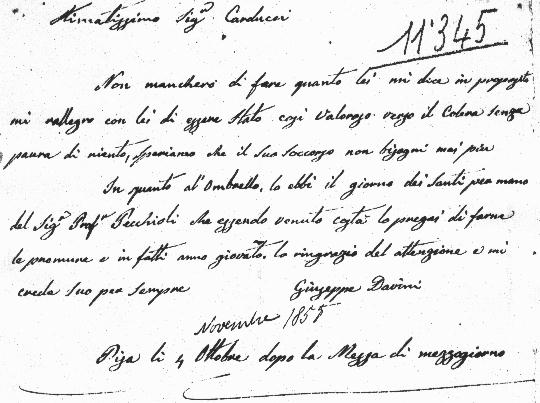 Stimatissimo Sigr Carducci
11345
Non mancherò di fare quanto lei mi dice in proposito
mi rallegro con lei di essere stato cosi valoroso verso il Colera senza
paura di niente, speriamo che il suo soccorso non bisogni mai più
In quanto al'Ombrello, lo ebbi il giorno dei Santi per mano
del Sigr Profr Pecchioli che essendo venuto costà lo pregai di farne
le premure e in fatti anno giovato, la ringrazio del attenzione e mi
creda suo per sempre
Giuseppe Davini
Novembre 1855
Pisa li 4 Ottobre dopo la Messa di mezzogiorno